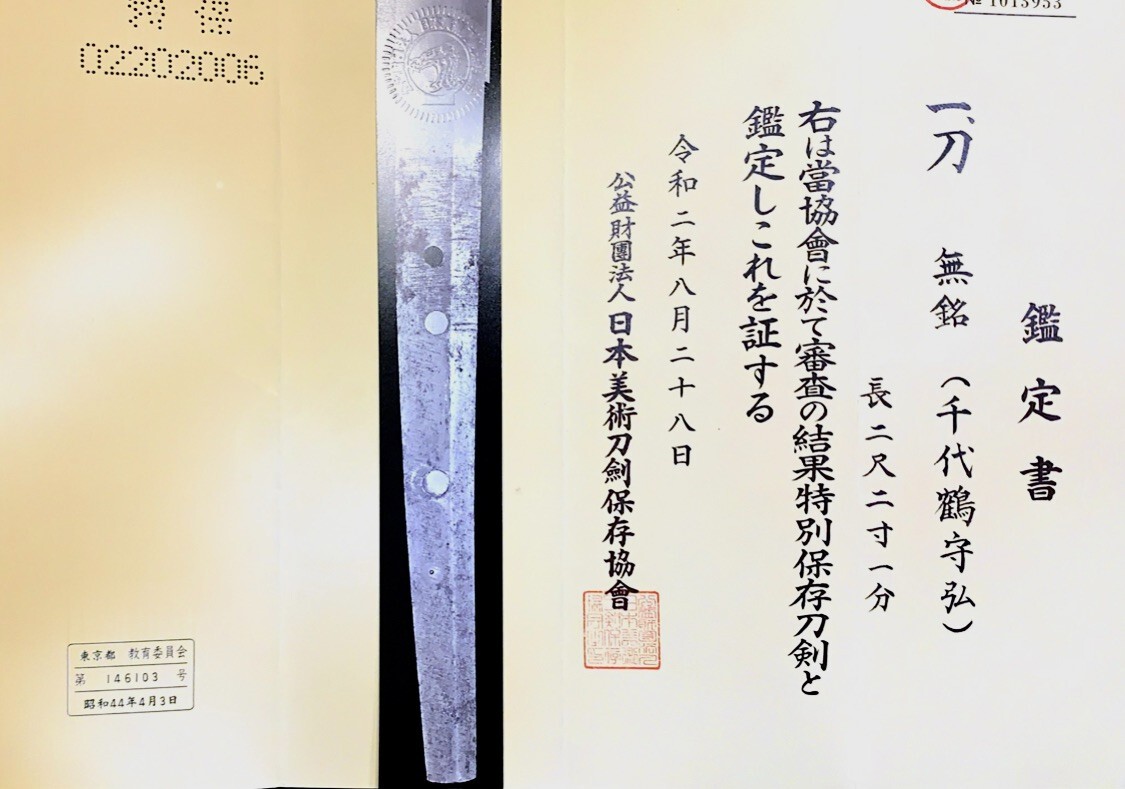 № 1013953
鑑定書
一、刀 無銘（千代鶴守弘）
長二尺二寸一分
右は當協會に於て審査の結果特別保存刀剣と
鑑定しこれを証する
令和二年八月二十八日
公益財團法人日本美術刀劍保存協會
02202006
東京都 教育委員会
第 146103 号
昭和44年4月3日